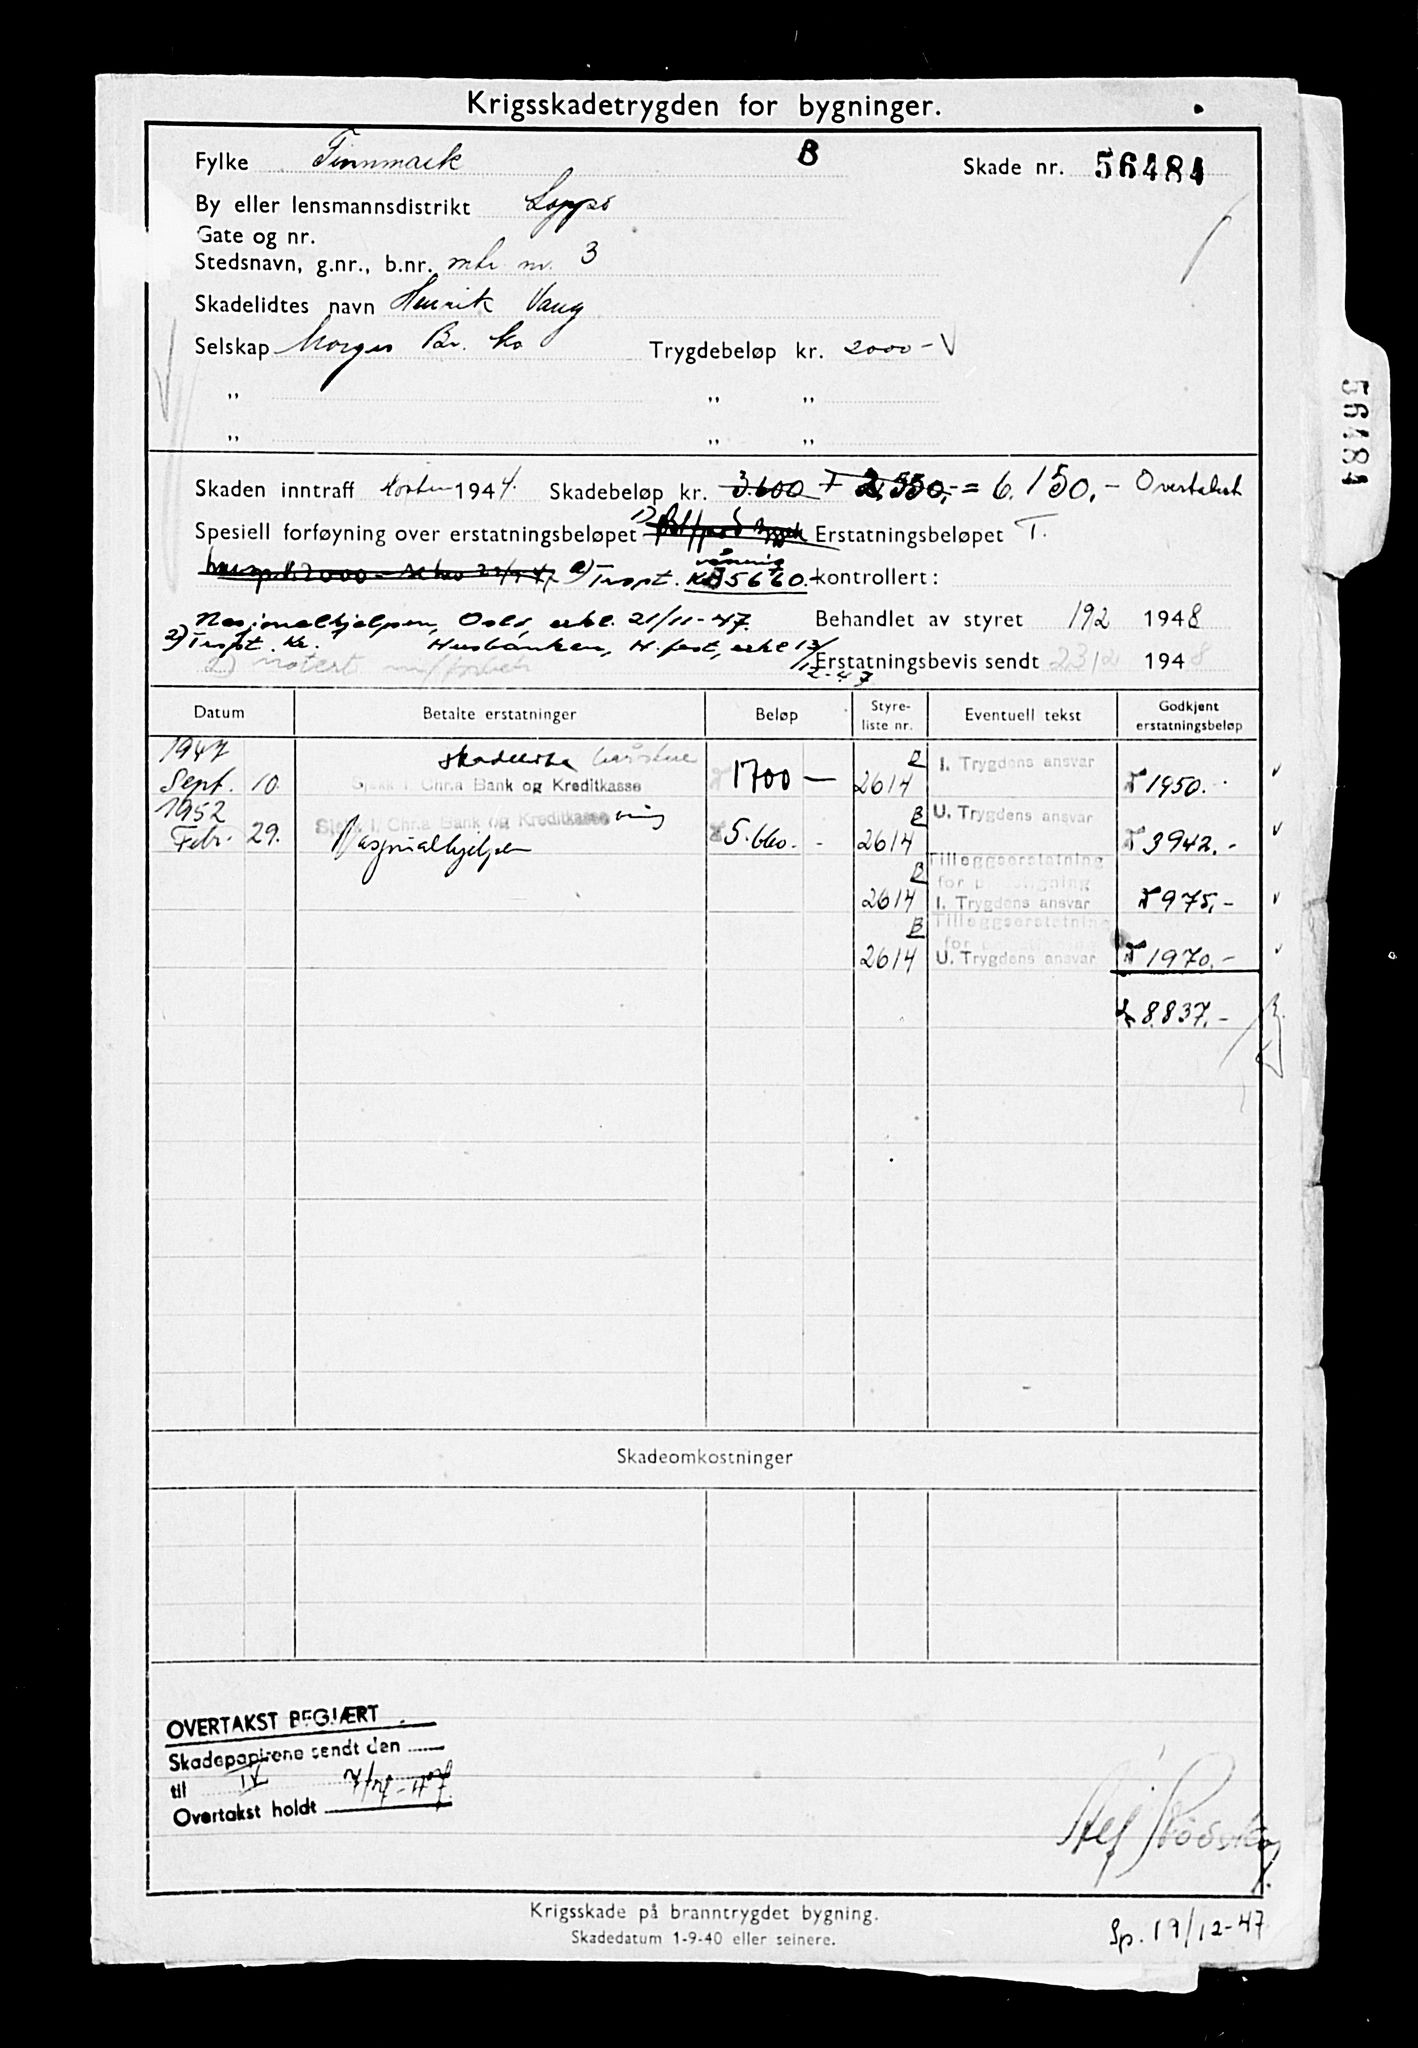 Krigsskadetrygden for bygninger.
Fylke Finnmark B Skade nr. 56484
By eller lensmannsdistrikt Loppa
Gate og nr.
Stedsnavn, g.nr., b.nr. mtr. nr. 3
Skadelidtes navn Henrik Vaag
Selskap Norges Br. ko Trygdebeløp kr. 2000 -
„ „ „
„ „ „
56484
Skaden inntraff Høsten 1944. Skadebeløp kr. 3.600 + 2.550,- = 6.150,- Overtakst
Spesiell forføyning over erstatningsbeløpet 1) Erstatningsbeløpet T.
2) Trspt. Kr 5660.- kontrollert:
Nasjonalhjelpen, Oslo, erkl. 21/11-47. Behandlet av styret 19 2 1948
2) Trspt. Kr. Husbanken, H.fest, erkl 13/12-47 Erstatningsbevis sendt 23/2 1948
2) notert
Datum Betalte erstatninger Beløp Styre-liste nr. Eventuell tekst Godkjent erstatningsbeløp
1947 skadelidte B I. Trygdens ansvar
Sept. 10. Sjekk i Chr.a Bank og Kreditkasse 1700 - 2614 1950.-
1952 Sjekk i Chr.a Bank og Kreditkasse B U. Trygdens ansvar
Febr. 29. Nasjonalhjelpen 5.660.- 2614 3942.-
B Tilleggserstatning
for prisstigning
2614 I. Trygdens ansvar 975,-
B Tilleggserstatning
for prisstigning
2614 U. Trygdens ansvar 1970.-
8.837.-
Skadeomkostninger
OVERTAKST BEGJÆRT
Skadepapirene sendt den
til IV
Overtakst holdt
Krigsskade på branntrygdet bygning.
Skadedatum 1-9-40 eller seinere.
Sp. 19/12-47